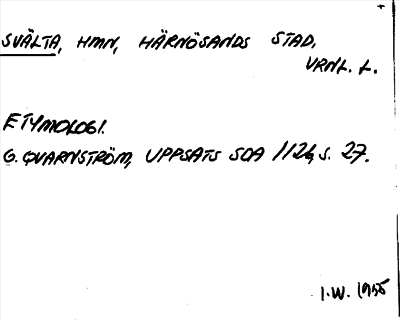 SVÄLTA, HMN, HÄRNÖSANDS STAD,
VRNL. L.
ETYMOLOGI.
G. QVARNSTRÖM, UPPSATS SOA 1124, S. 27.
I.W. 1955